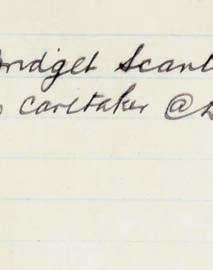 Bridget Scanl
caretaker @